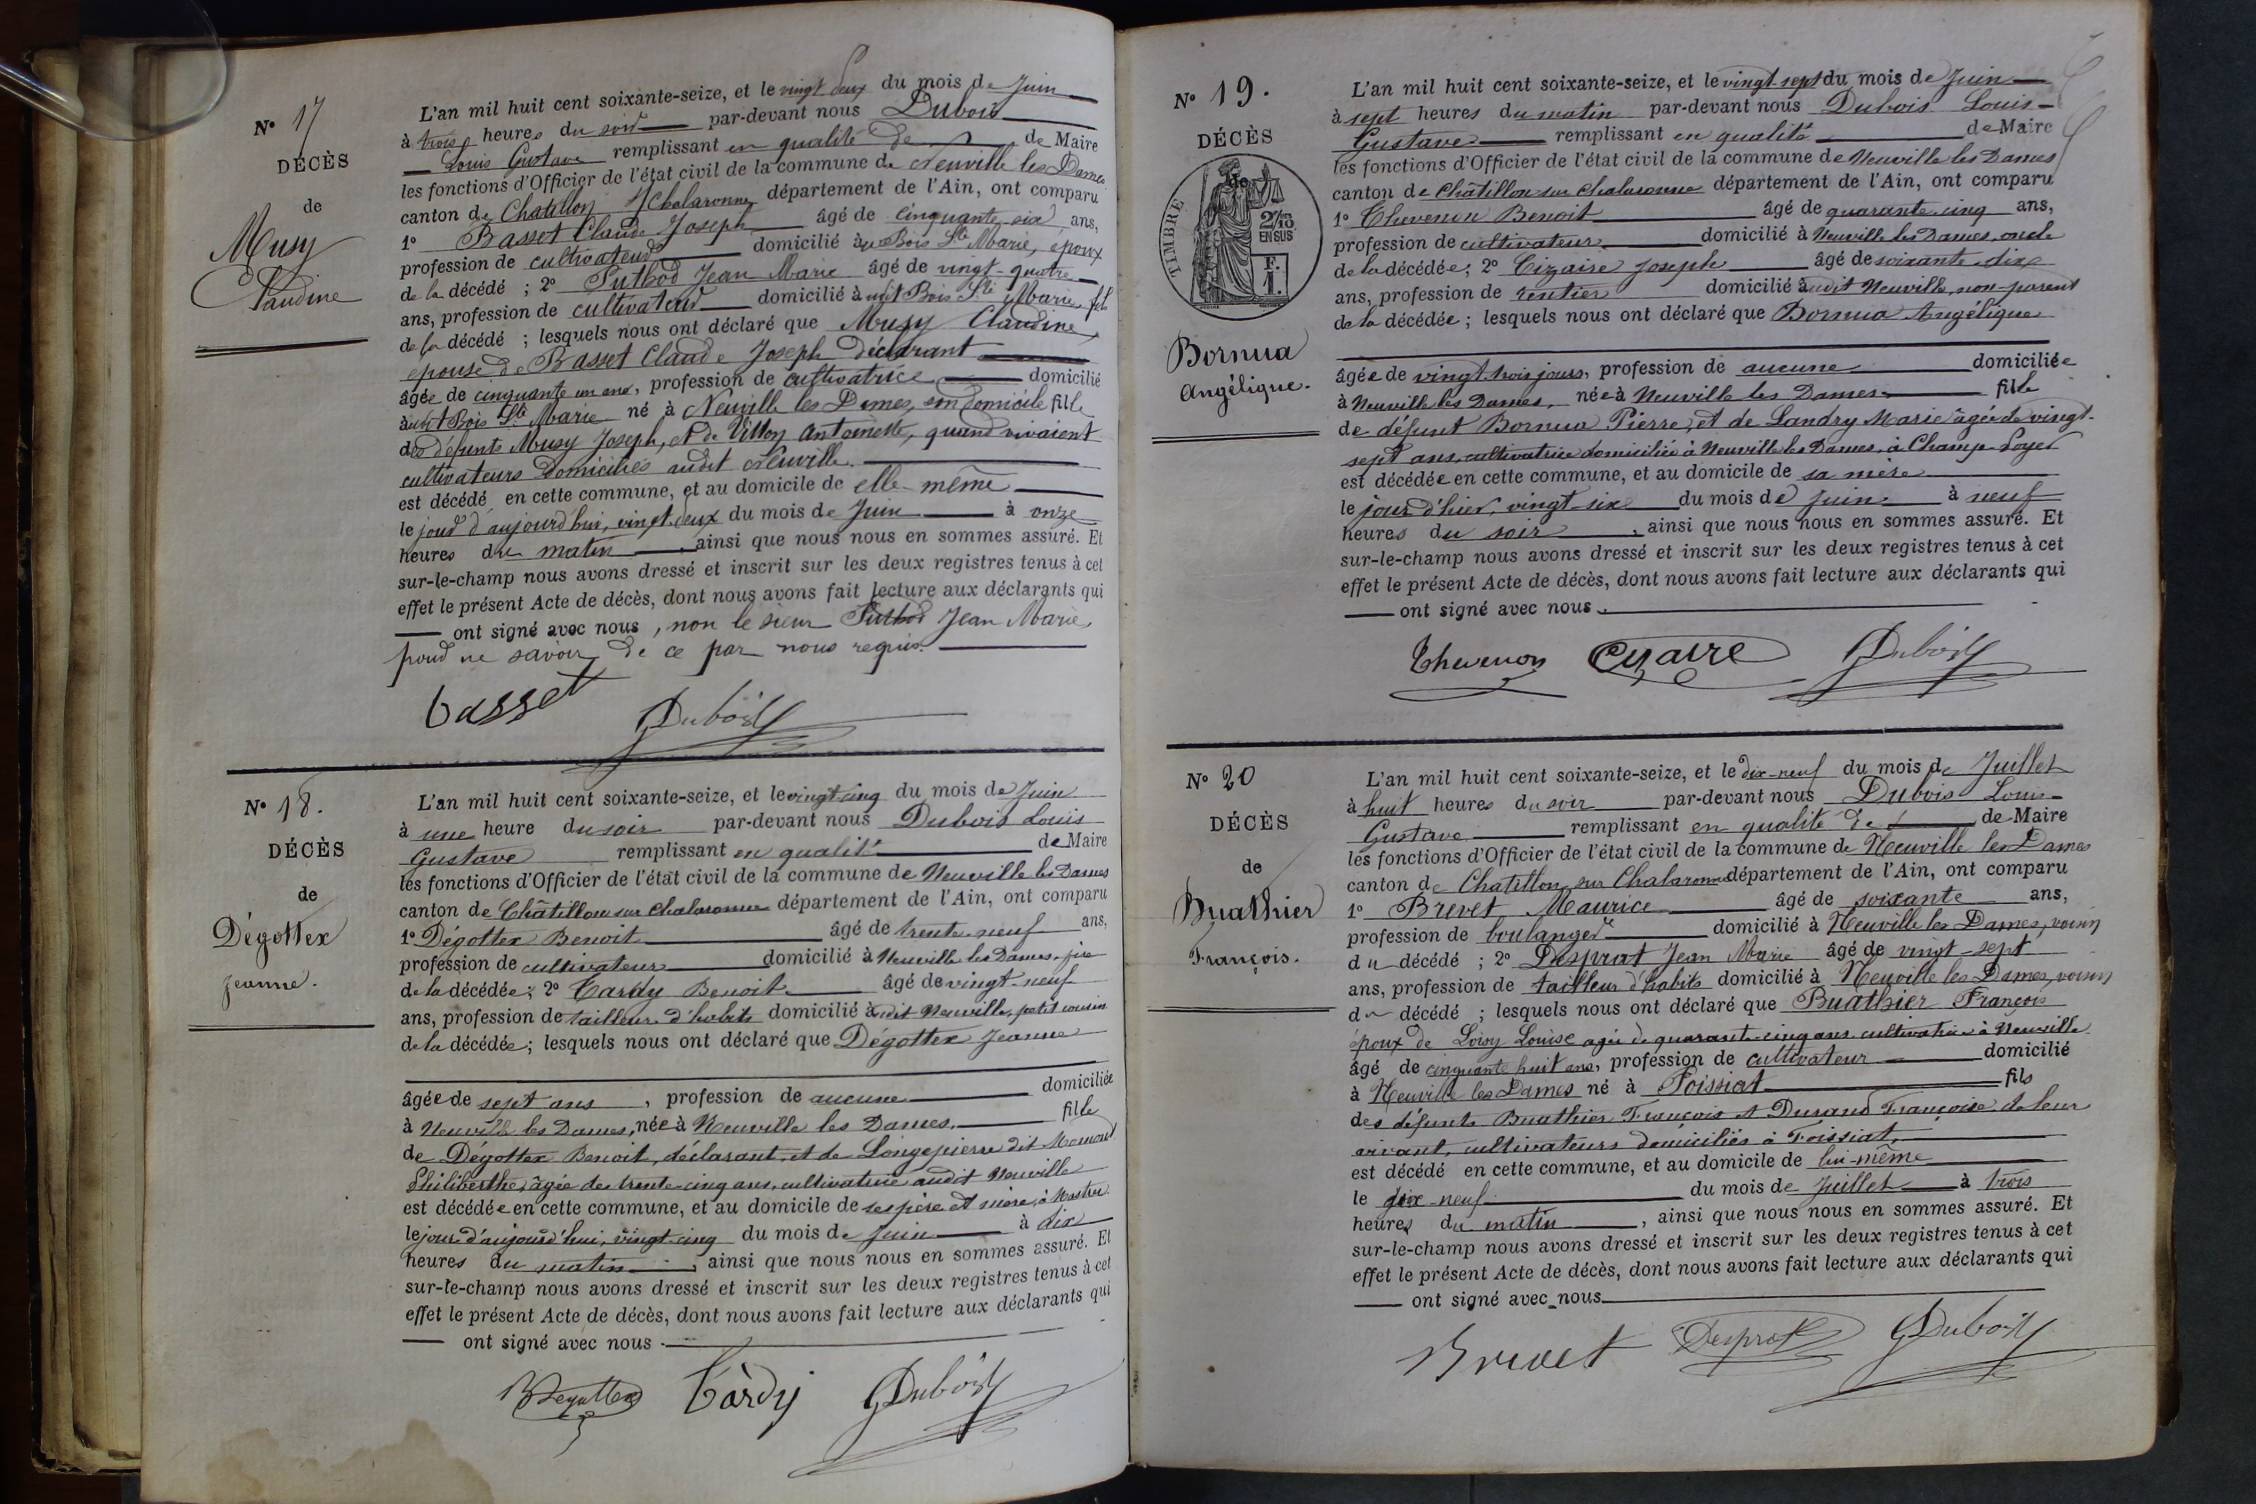 N° 17
DÉCÈS
de
Musy
Claudine
L'an mil huit cent soixante-seize, et le vingt deux du mois de Juin
à trois heures du soir par-devant nous Dubois
Louis Gustave remplissant en qualité de de Maire
les fonctions d'Officier de l'état civil de la commune de Neuville les Dames
canton de Chatillon s/ Chalaronne département de l'Ain, ont comparu
1° Basset Claude Joseph âgé de cinquante six ans,
profession de cultivateur domicilié au Bois Ste Marie, époux
de la décédé ; 2° Puthod Jean Marie âgé de vingt-quatre
ans, profession de cultivateur domicilié à udit Bois Ste Marie, fils
de la décédé ; lesquels nous ont déclaré que Musy Claudine,
épouse de Basset Claude Joseph déclarant
âgée de cinquante un ans, profession de cultivatrice domicilié
audit Bois Ste Marie né à Neuville les Dames, son domicile fille
des défunts Musy Joseph, et de Villon Antoinette, quand vivaient
cultivateurs domiciliés audit Neuville.
est décédé en cette commune, et au domicile de elle-même
le jour d'aujourd'hui, vingt-deux du mois de Juin à onze
heures du matin, ainsi que nous nous en sommes assuré. Et
sur-le-champ nous avons dressé et inscrit sur les deux registres tenus à cet
effet le présent Acte de décès, dont nous avons fait lecture aux déclarants qui
ont signé avec nous, non le sieur Puthod Jean Marie,
pour ne savoir de ce par nous requis.
basset Dubois
N° 18.
DÉCÈS
de
Dégottex
Jeanne.
L'an mil huit cent soixante-seize, et le vingt cinq du mois de Juin
à une heure du soir par-devant nous Dubois Louis
Gustave remplissant en qualité de Maire
les fonctions d'Officier de l'état civil de la commune de Neuville les Dames
canton de Châtillon sur Chalaronne département de l'Ain, ont comparu
1° Dégottex Benoit âgé de trente-neuf ans,
profession de cultivateur domicilié à Neuville les Dames, père
de la décédée ; 2° Tardy Benoit âgé de vingt-neuf
ans, profession de tailleur d'habits domicilié audit Neuville, petit cousin
de la décédée ; lesquels nous ont déclaré que Dégottex Jeanne
âgée de sept ans, profession de aucune domiciliée
à Neuville les Dames, née à Neuville les Dames, fille
de Dégottex Benoit, déclarant, et de Longepierre dit
Philiberthe, âgée de trente-cinq ans, cultivatrice audit Neuville
est décédée en cette commune, et au domicile de ses père et mère, à
le jour d'aujourd'hui, vingt-cinq du mois de Juin à dix
heures du matin, ainsi que nous nous en sommes assuré. Et
sur-le-champ nous avons dressé et inscrit sur les deux registres tenus à cet
effet le présent Acte de décès, dont nous avons fait lecture aux déclarants qui
ont signé avec nous.
B Degottex Tardy Dubois
N° 19.
DÉCÈS
de
TIMBRE
2/10
EN SUS
F.
1.
Bornua
Angélique.
L'an mil huit cent soixante-seize, et le vingt-sept du mois de Juin
à sept heures du matin par-devant nous Dubois Louis-
Gustave remplissant en qualité de Maire
les fonctions d'Officier de l'état civil de la commune de Neuville les Dames
canton de Châtillon sur Chalaronne département de l'Ain, ont comparu
1° Thevenon Benoit âgé de quarante-cinq ans,
profession de cultivateur domicilié à Neuville les Dames, oncle
de la décédée ; 2° Cizaire Joseph âgé de soixante-dix
ans, profession de rentier domicilié audit Neuville, non-parent
de la décédée ; lesquels nous ont déclaré que Bornua Angélique
âgée de vingt-trois jours, profession de aucune domiciliée
à Neuville les Dames, née à Neuville les Dames, fille
de défunt Bornua Pierre, et de Landry Marie âgée de vingt-
sept ans, cultivatrice domiciliée à Neuville les Dames, à Champ-Loyer
est décédée en cette commune, et au domicile de sa mère
le jour d'hier, vingt-six du mois de Juin à neuf
heures du soir, ainsi que nous nous en sommes assuré. Et
sur-le-champ nous avons dressé et inscrit sur les deux registres tenus à cet
effet le présent Acte de décès, dont nous avons fait lecture aux déclarants qui
ont signé avec nous.
Thevenon Cizaire Dubois
N° 20
DÉCÈS
de
Buathier
François.
L'an mil huit cent soixante-seize, et le dix-neuf du mois de Juillet
à huit heures du soir par-devant nous Dubois Louis-
Gustave remplissant en qualité de de Maire
les fonctions d'Officier de l'état civil de la commune de Neuville les Dames
canton de Chatillon sur Chalaronne département de l'Ain, ont comparu
1° Brevet Maurice âgé de soixante ans,
profession de boulanger domicilié à Neuville les Dames, voisin
du décédé ; 2° Desprat Jean Marie âgé de vingt-sept
ans, profession de tailleur d'habits domicilié à Neuville les Dames, voisin
du décédé ; lesquels nous ont déclaré que Buathier François
époux de Loisy Louise agée de quarante-cinq ans cultivatrice à Neuville
âgé de cinquante huit ans, profession de cultivateur domicilié
à Neuville les Dames né à Foissiat fils
des défunts Buathier François et Durand Françoise de leur
vivant, cultivateurs domiciliés à Foissiat,
est décédé en cette commune, et au domicile de lui-même
le dix-neuf du mois de Juillet à trois
heures du matin, ainsi que nous nous en sommes assuré. Et
sur-le-champ nous avons dressé et inscrit sur les deux registres tenus à cet
effet le présent Acte de décès, dont nous avons fait lecture aux déclarants qui
ont signé avec nous
Brevet Desprat Dubois